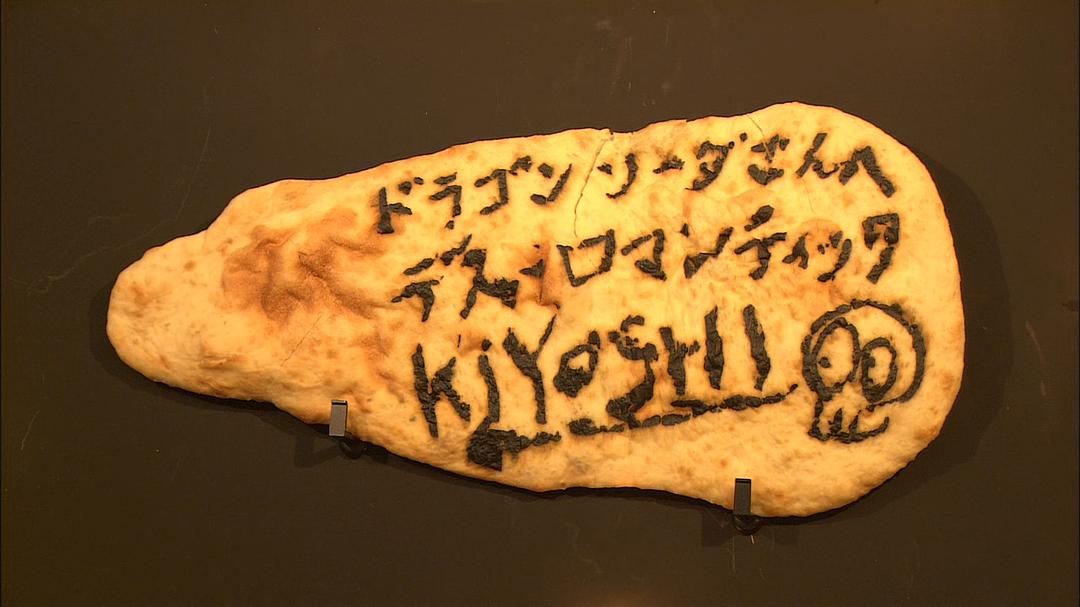 ドラゴンソーダさんへ
デス・ロマンティック
KiYOSHI